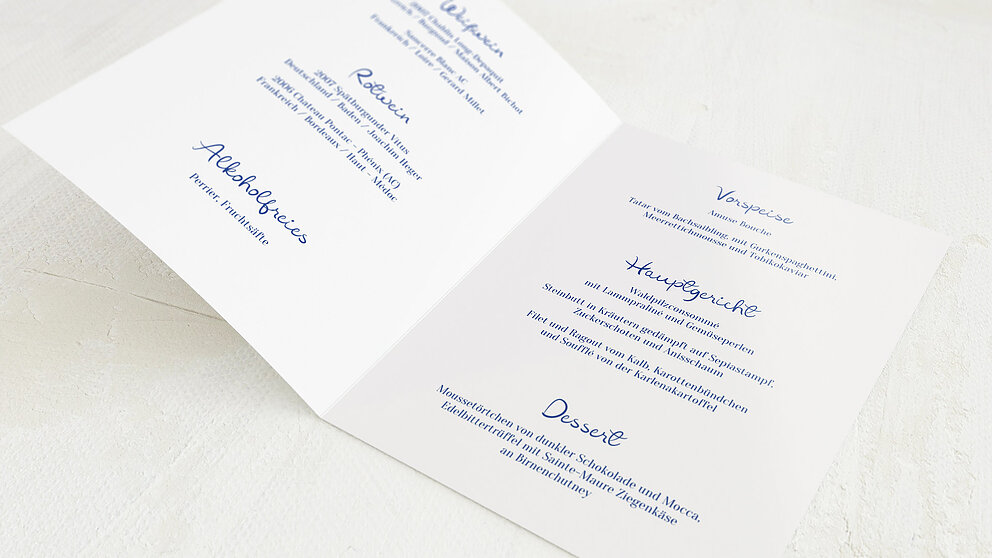 Weißwein
2007 Chablis Long-Depaquit
Frankreich / Burgund / Maison Albert Bichot
Sancerre Blanc AC
Frankreich / Loire / Gerard Millet
Rotwein
2007 Spätburgunder Vitus
Deutschland / Baden / Joachim Heger
2006 Chateau Pontac – Phénix (AC)
Frankreich / Bordeaux / Haut – Médoc
Alkoholfreies
Perrier, Fruchtsäfte
Vorspeise
Amuse Bouche
Tatar vom Bachsaibling, mit Gurkenspaghettini,
Meerrettichmousse und Tobikokaviar
Hauptgericht
Waldpilzconsommé
mit Lammpraliné und Gemüseperlen
Steinbutt in Kräutern gedämpft auf Sepiastampf,
Zuckerschoten und Anisschaum
Filet und Ragout vom Kalb, Karottenbündchen
und Soufflé von der Karlenakartoffel
Dessert
Moussetörtchen von dunkler Schokolade und Mocca,
Edelbittertrüffel mit Sainte-Maure Ziegenkäse
an Birnenchutney